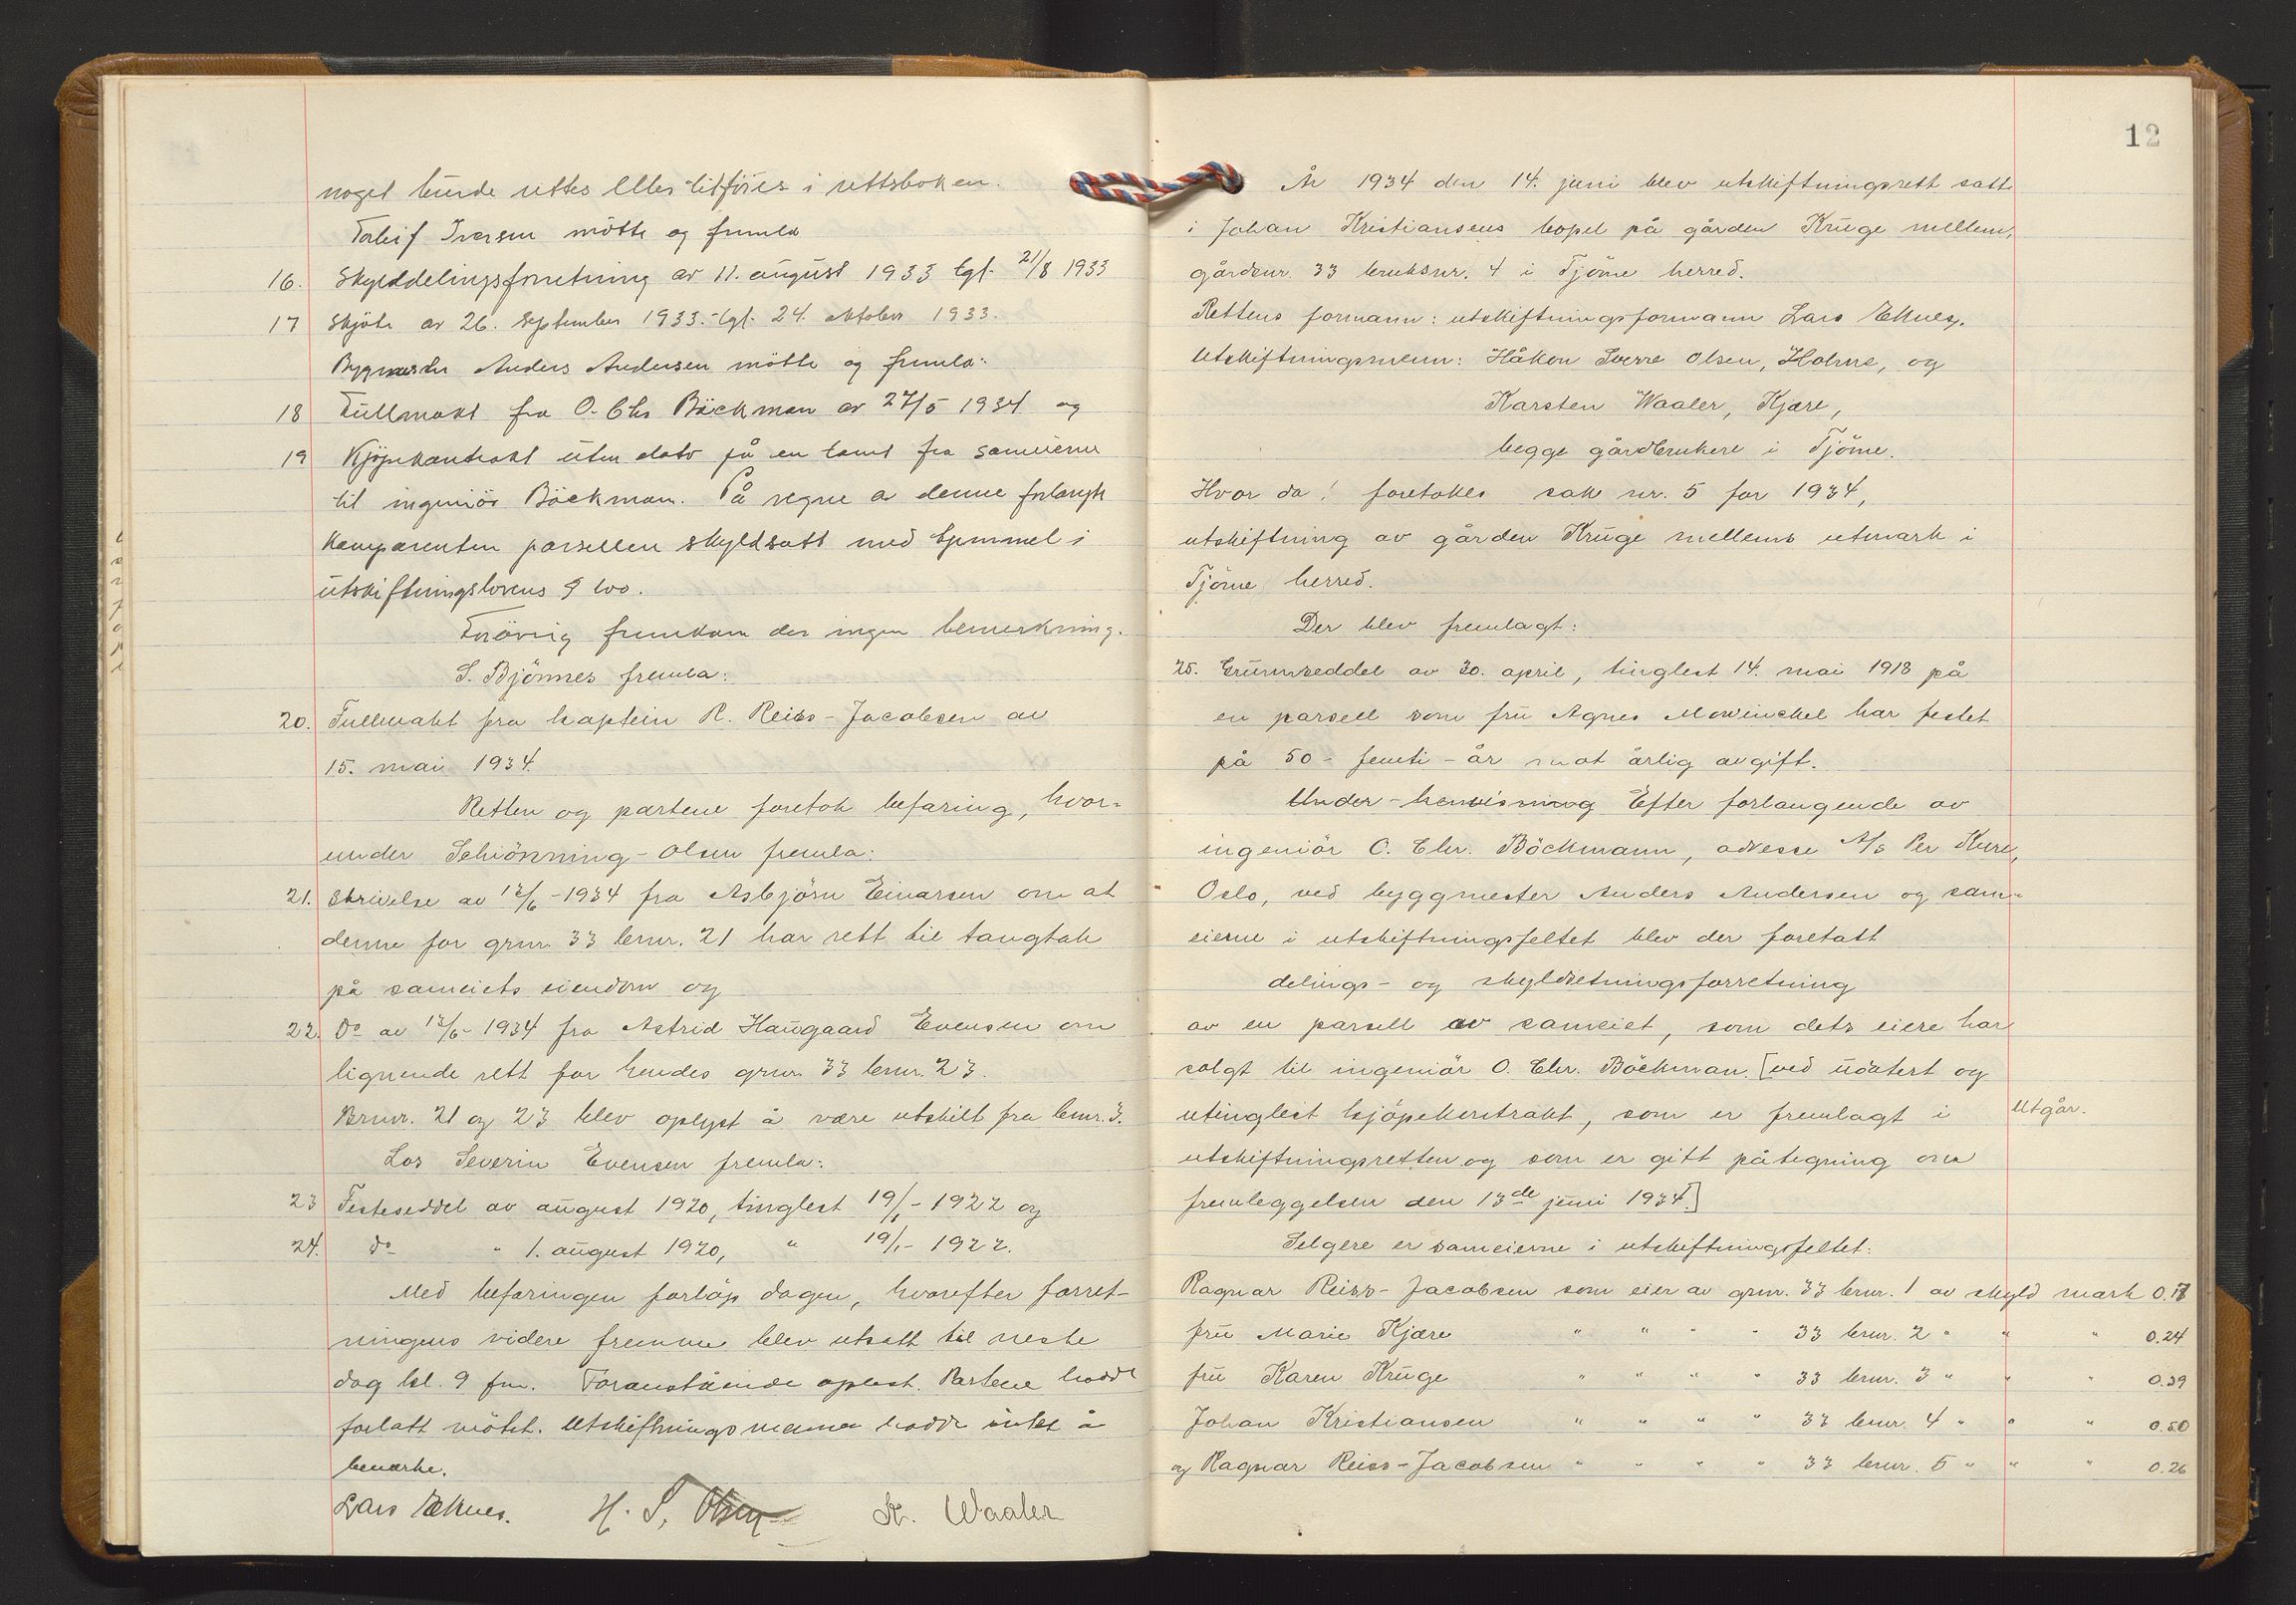 noget burde rettes eller tilføies i rettsboken.
Torleif Iversen møtte og fremla
16. Skylddelingsforretning av 11. august 1933 tgl. 21/8 1933
17 Skjøte av 26. september 1933. tgl. 24. oktober 1933.
Byggmester Anders Andersen møtte og fremla:
18 Fullmakt fra O. Chr Böckman av 27/5 1934 og
19 Kjøpekontrakt uten dato på en tomt fra sameierne
til ingeniör Böckman. På vegne av denne forlangte
komparenten parsellen skyldsatt med hjemmel i
utskiftningslovens § 100.
Forøvrig fremkom der ingen bemerkning.
S. Bjönnes fremla:
20. Fullmakt fra kaptein R. Reiss-Jacobsen av
15. mai 1934.
Retten og partene foretok befaring, hvor-
under Schiönning-Olsen fremla:
21. Skrivelse av 12/6-1934 fra Asbjörn Einarsen om at
denne for grnr. 33 brnr. 21 har rett til tangtak
på sameiets eiendom og
22. Do av 12/6-1934 fra Astrid Haugaard Evensen om
lignende rett for hendes grnr. 33 brnr. 23.
Brnr. 21 og 23 blev oplyst å være utskilt fra brnr. 3.
Los Severin Evensen fremla:
23 Festeseddel av august 1920, tinglest 19/1-1922 og
24. do " 1. august 1920, " 19/1-1922.
Med befaringen forlöp dagen, hvorefter forret-
ningens videre fremme blev utsatt til neste
dag kl. 9 fm. Foranstående oplest. Partene hadde
forlatt mötet. Utskiftningsmennene hadde intet å
bemerke.
Lars Eknes. H. S. Olsen K. Waaler
12
År 1934 den 14. juni blev utskiftningsrett satt
i Johan Kristiansens bopel på gården Kruge mellem,
gårdsnr. 33 bruksnr. 4 i Tjöme herred.
Rettens formann: utskiftningsformann Lars Eknes.
Utskiftningsmenn: Håkon Sverre Olsen, Holme, og
Karsten Waaler, Kjære,
begge gårdbrukere i Tjöme.
Hvor da! foretokes sak nr. 5 for 1934,
utskiftning av gården Kruge mellems utmark i
Tjöme herred.
Der blev fremlagt:
25. Grunnseddel av 30. april, tinglest 14. mai 1918 på
en parsell som fru Agnes Mowinckel har festet
på 50 - femti - år mot årlig avgift.
Under henvisning Efter forlangende av
ingeniör O. Chr. Böckmann, adresse A/S Per Kure,
Oslo, ved byggmester Anders Andersen og sam-
eierne i utskiftningsfeltet blev der foretatt
delings- og skyldsetningsforretning
av en parsell av sameiet, som dets eiere har
solgt til ingeniör O. Chr. Böckman. [ved udatert og
utinglest kjöpekontrakt, som er fremlagt i Utgår.
utskiftningsretten og som er gitt påtegning om
fremleggelsen den 13de juni 1934.]
Selgere er sameierne i utskiftningsfeltet:
Ragnar Reiss-Jacobsen som eier av grnr. 33 brnr. 1 av skyld mark 0.18
fru Marie Kjære " " " " 33 brnr. 2 " " " 0.24
fru Karen Kruge " " " " 33 brnr. 3 " " " 0.39
Johan Kristiansen " " " " 33 brnr. 4 " " " 0.50
og Ragnar Reiss-Jacobsen " " " " 33 brnr. 5 " " " 0.26